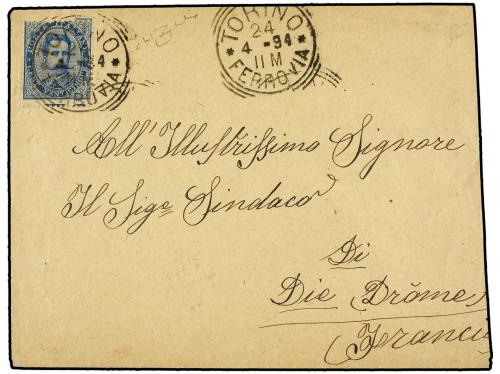 TORINO
24
4 - 94
11 M
FERROVIA
All' Illustrissimo Signore
Il Sigo Sindaco
Di
Die Drôme
(Franci